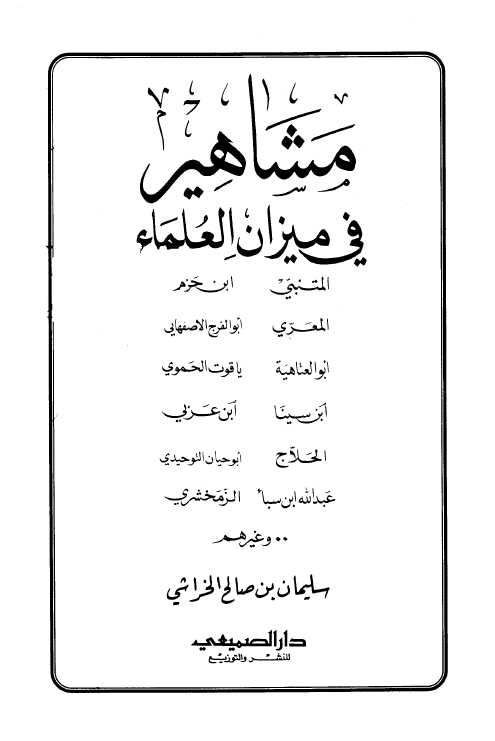 مَشَاهِير
في ميزان العُلمَاء
المتنبّي ابن حَزم
المعَرّي أبو الفرج الأصفهاني
أبو العتاهية ياقوت الحَموي
ابن سينَا ابن عَربي
الحَلاّج أبو حيان التوحيدي
عَبدالله ابن سبأ الزمخشري
.. وغيرهم
سليمان بن صالح الخراشي
دار الصميعي
للنشر والتوزيع